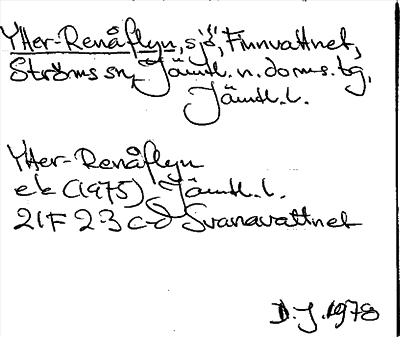 Ytter-Renåflyn, sjö, Finnvattnet,
Ströms sn, Jämtl. n. doms. tg,
Jämtl. l.
Ytter-Renåflyn
ek (1975) Jämtl. l.
21F 2-3 c-d Svanavattnet
D.J. 1978